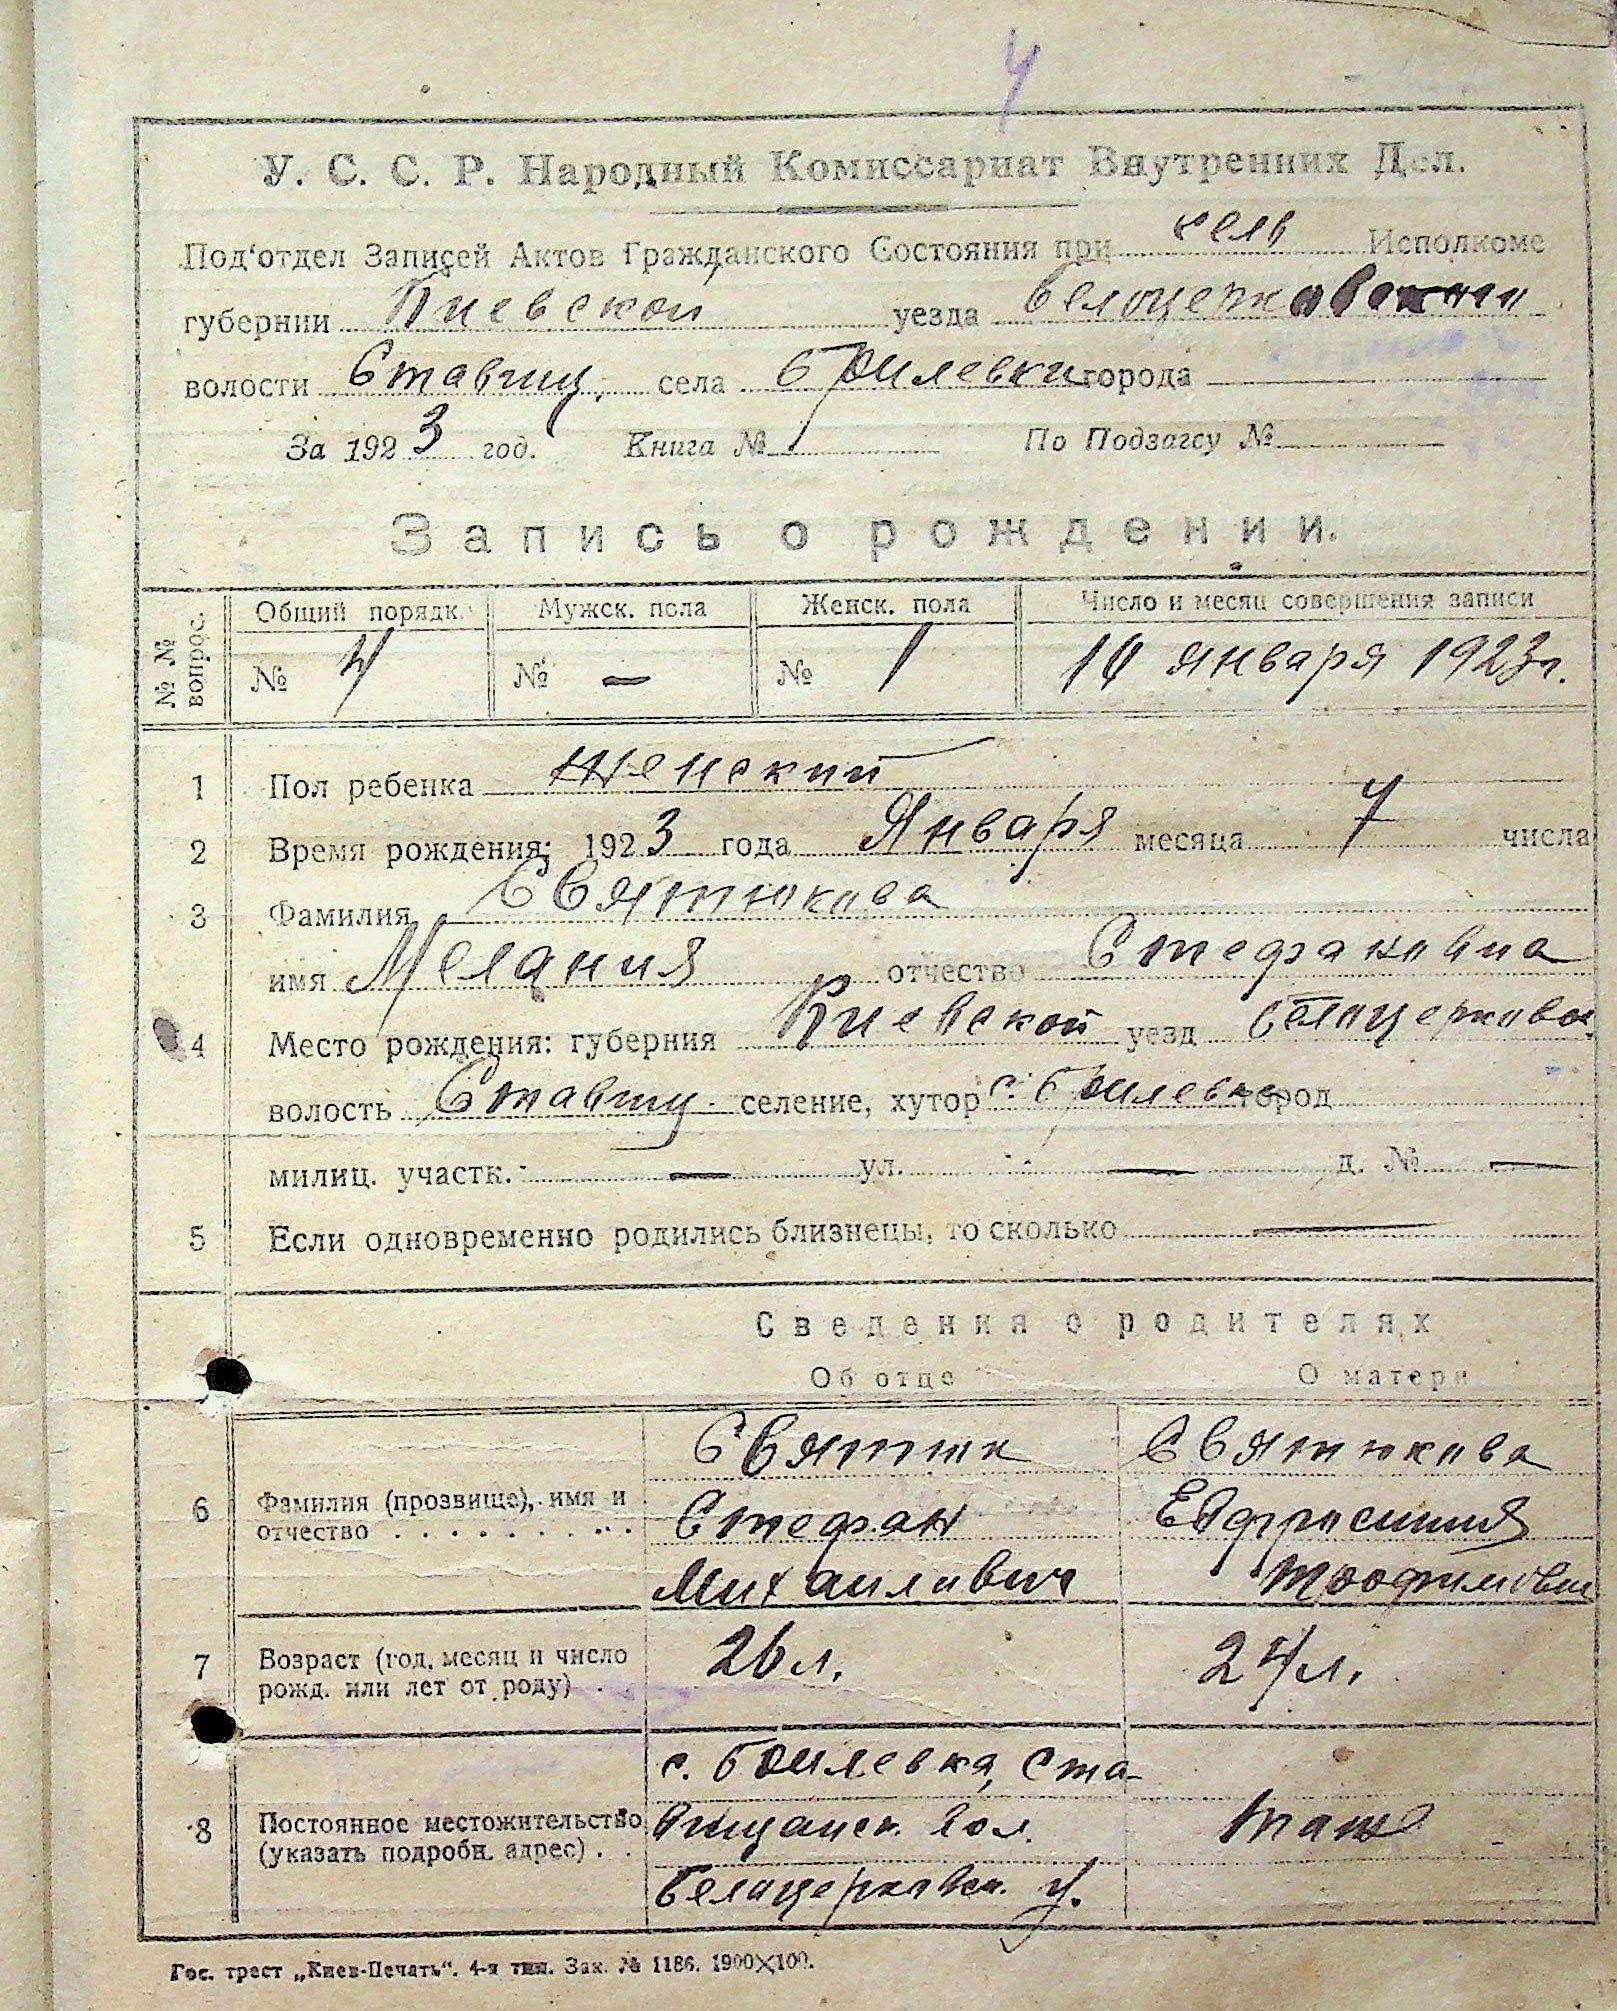 4
У. С. С. Р. Народный Комиссариат Внутренних Дел.
Под'отдел Записей Актов Гражданского Состояния при сель Исполкоме
губернии Киевской уезда Белоцерковского
волости Ставищ. села Брилевки города
За 1923 год. Книга № По Подзагсу №
Запись о рождении.
№№ вопрос. Общий порядк. Мужск. пола Женск. пола Число и месяц совершения записи
№ 4 № — № 1 14 января 1923 г.
1 Пол ребенка женский
2 Время рождения: 1923 года Января месяца 7 числа
3 Фамилия Святюкова
имя Мелания отчество Стефановна
4 Место рождения: губерния Киевской уезд Белоцерковск.
волость Ставищ. селение, хутор с. Брилевка город
милиц. участк. — ул. — д. № —
5 Если одновременно родились близнецы, то сколько —
Сведения о родителях
Об отце О матери
Святюк Святюкова
6 Фамилия (прозвище), имя и Стефан Евфросиния
отчество . . . . . . . . . . Михаилович Трофимовна
7 Возраст (год, месяц и число 26 л. 24 л.
рожд. или лет от роду) . .
с. Брилевка, Ста-
8 Постоянное местожительство вищанск. вол. таже
(указать подробн. адрес) . .
Белоцерковск. у.
Гос. трест „Киев-Печать“. 4-я тип. Зак. № 1186. 1900×100.